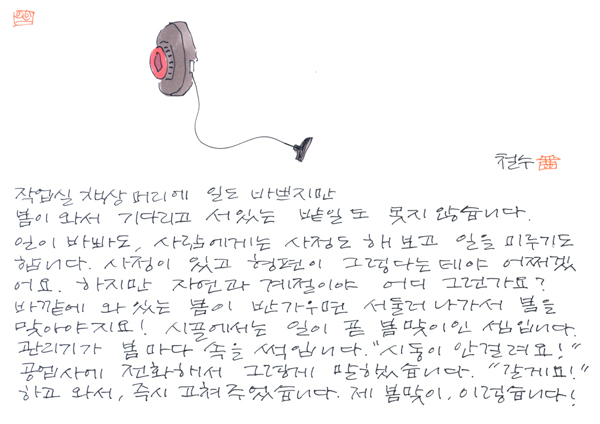 철수
작업실 책상 머리에 일도 바쁘지만
봄이 와서 기다리고 서있는 밭일도 못지 않습니다.
일이 바빠도, 사람에게는 사정도 해 보고 일을 미루기도
합니다. 사정이 있고 형편이 그렇다는데야 어쩌겠
어요. 하지만 자연과 계절이야 어디 그런가요?
바깥에 와 있는 봄이 반가우면 서둘러 나가서 봄을
맞아야지요! 시골에서는 일이 곧 봄맞이인 셈입니다.
관리기가 봄마다 속을 썩입니다. "시동이 안걸려요!"
공업사에 전화해서 그렇게 말했습니다. "갈게요!"
하고 와서, 즉시 고쳐주었습니다. 제 봄맞이, 이렇습니다!